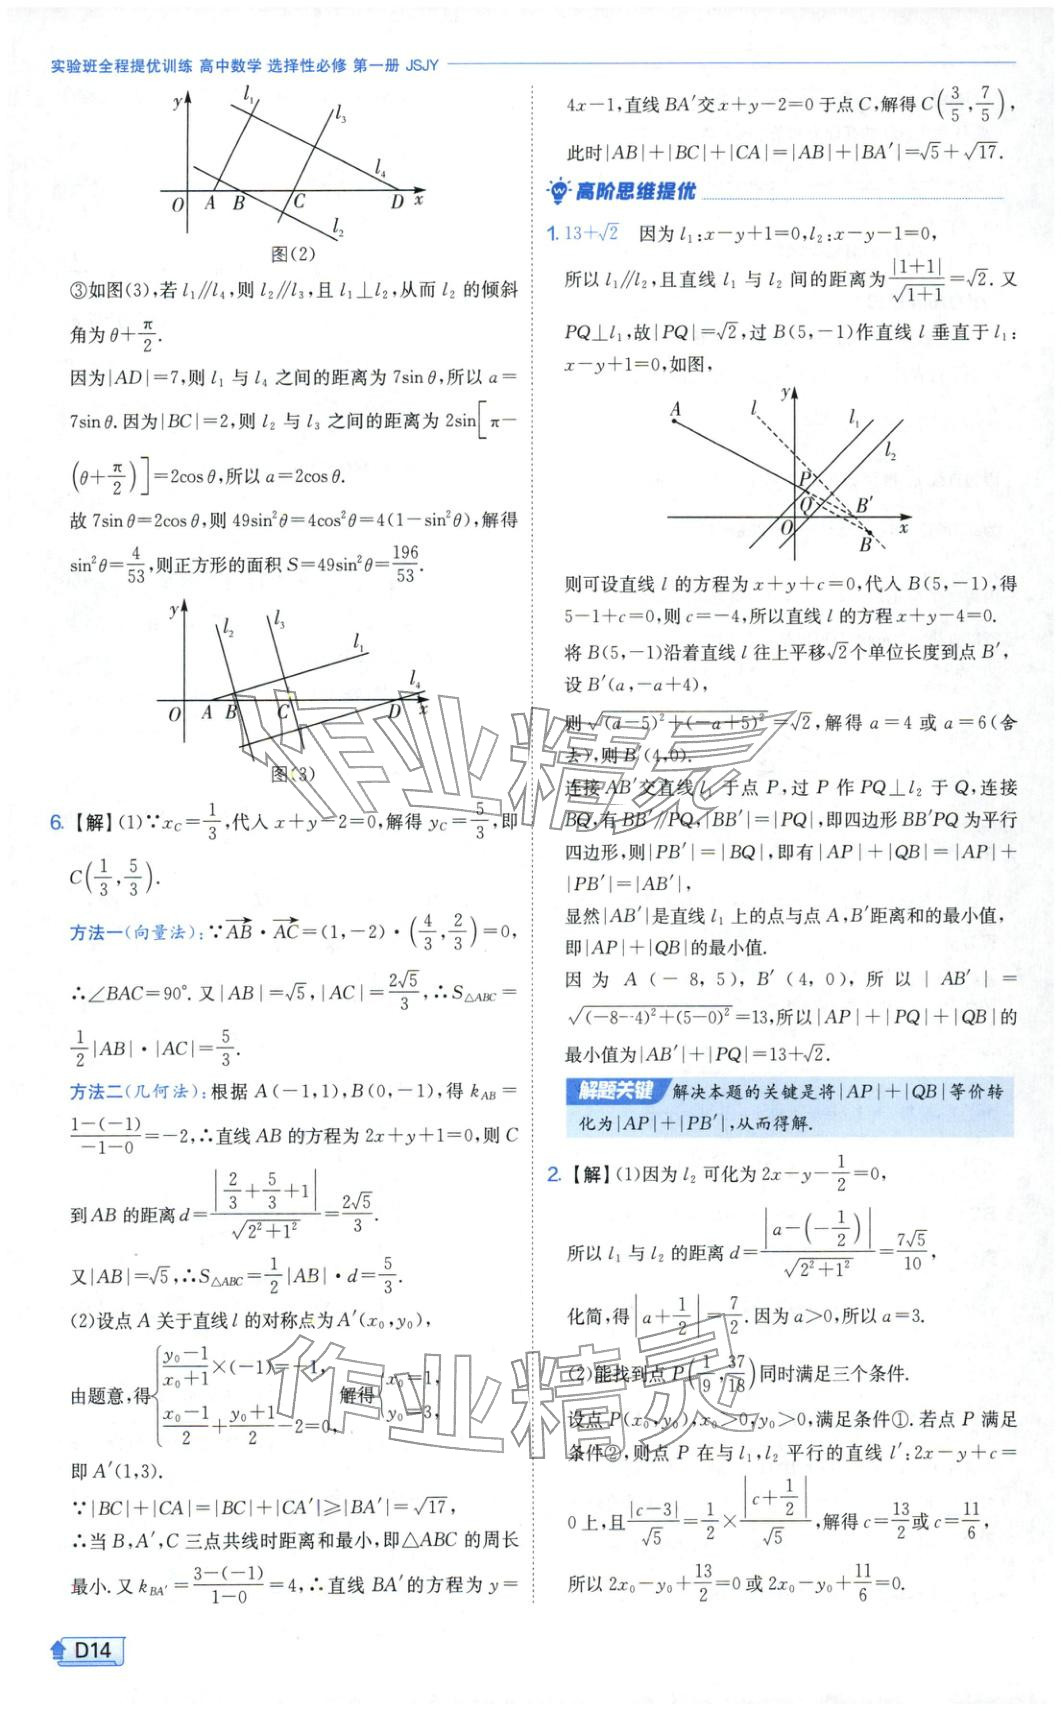 实验班全程提优训练 高中数学 选择性必修 第一册 JSJY
y l₁ l₃ l₄ O A B C D x l₂
图(2)
③如图(3),若 l₁∥l₄,则 l₂∥l₃,且 l₁⊥l₂,从而 l₂ 的倾斜
角为 θ+π/2.
因为|AD|=7,则 l₁ 与 l₄ 之间的距离为 7sin θ,所以 a=
7sin θ.因为|BC|=2,则 l₂ 与 l₃ 之间的距离为 2sin[π-
(θ+π/2)]=2cos θ,所以 a=2cos θ.
故 7sin θ=2cos θ,则 49sin²θ=4cos²θ=4(1-sin²θ),解得
sin²θ=4/53,则正方形的面积 S=49sin²θ=196/53.
y l₂ l₃ l₁ l₄ O A B C D x
图(3)
6. 【解】(1)∵x_C=1/3,代入 x+y-2=0,解得 y_C=5/3,即
C(1/3,5/3).
方法一(向量法):∵AB→·AC→=(1,-2)·(4/3,2/3)=0,
∴∠BAC=90°.又|AB|=√5,|AC|=2√5/3,∴S△ABC=
1/2|AB|·|AC|=5/3.
方法二(几何法):根据 A(-1,1),B(0,-1),得 k_AB=
(1-(-1))/(-1-0)=-2,∴直线 AB 的方程为 2x+y+1=0,则 C
到 AB 的距离 d=|2/3+5/3+1|/√(2²+1²)=2√5/3.
又|AB|=√5,∴S△ABC=1/2|AB|·d=5/3.
(2)设点 A 关于直线 l 的对称点为 A′(x₀,y₀),
由题意,得{(y₀-1)/(x₀+1)×(-1)=-1, (x₀-1)/2+(y₀+1)/2-2=0, 解得{x₀=1, y₀=3,
即 A′(1,3).
∵|BC|+|CA|=|BC|+|CA′|≥|BA′|=√17,
∴当 B,A′,C 三点共线时距离和最小,即△ABC 的周长
最小.又 k_BA′=(3-(-1))/(1-0)=4,∴直线 BA′的方程为 y=
D14
4x-1,直线 BA′交 x+y-2=0 于点 C,解得 C(3/5,7/5),
此时|AB|+|BC|+|CA|=|AB|+|BA′|=√5+√17.
高阶思维提优
1. 13+√2 因为 l₁:x-y+1=0,l₂:x-y-1=0,
所以 l₁∥l₂,且直线 l₁ 与 l₂ 间的距离为|1+1|/√(1+1)=√2.又
PQ⊥l₁,故|PQ|=√2,过 B(5,-1)作直线 l 垂直于 l₁:
x-y+1=0,如图,
A l y l₁ l₂ P Q B′ O x B
则可设直线 l 的方程为 x+y+c=0,代入 B(5,-1),得
5-1+c=0,则 c=-4,所以直线 l 的方程 x+y-4=0.
将 B(5,-1)沿着直线 l 往上平移√2个单位长度到点 B′,
设 B′(a,-a+4),
则√((a-5)²+(-a+5)²)=√2,解得 a=4 或 a=6(舍
去),则 B′(4,0).
连接 AB′交直线 l₁ 于点 P,过 P 作 PQ⊥l₂ 于 Q,连接
BQ,有 BB′∥PQ,|BB′|=|PQ|,即四边形 BB′PQ 为平行
四边形,则|PB′|=|BQ|,即有|AP|+|QB|=|AP|+
|PB′|=|AB′|,
显然|AB′|是直线 l₁ 上的点与点 A,B′距离和的最小值,
即|AP|+|QB|的最小值.
因为 A(-8,5),B′(4,0),所以|AB′|=
√((-8-4)²+(5-0)²)=13,所以|AP|+|PQ|+|QB|的
最小值为|AB′|+|PQ|=13+√2.
解题关键 解决本题的关键是将|AP|+|QB|等价转
化为|AP|+|PB′|,从而得解.
2. 【解】(1)因为 l₂ 可化为 2x-y-1/2=0,
所以 l₁ 与 l₂ 的距离 d=|a-(-1/2)|/√(2²+1²)=7√5/10,
化简,得|a+1/2|=7/2.因为 a>0,所以 a=3.
(2)能找到点 P(1/9,37/18)同时满足三个条件.
设点 P(x₀,y₀),x₀>0,y₀>0,满足条件①.若点 P 满足
条件②,则点 P 在与 l₁,l₂ 平行的直线 l′:2x-y+c=
0 上,且|c-3|/√5=1/2×|c+1/2|/√5,解得 c=13/2或 c=11/6,
所以 2x₀-y₀+13/2=0 或 2x₀-y₀+11/6=0.
作业精灵
作业精灵